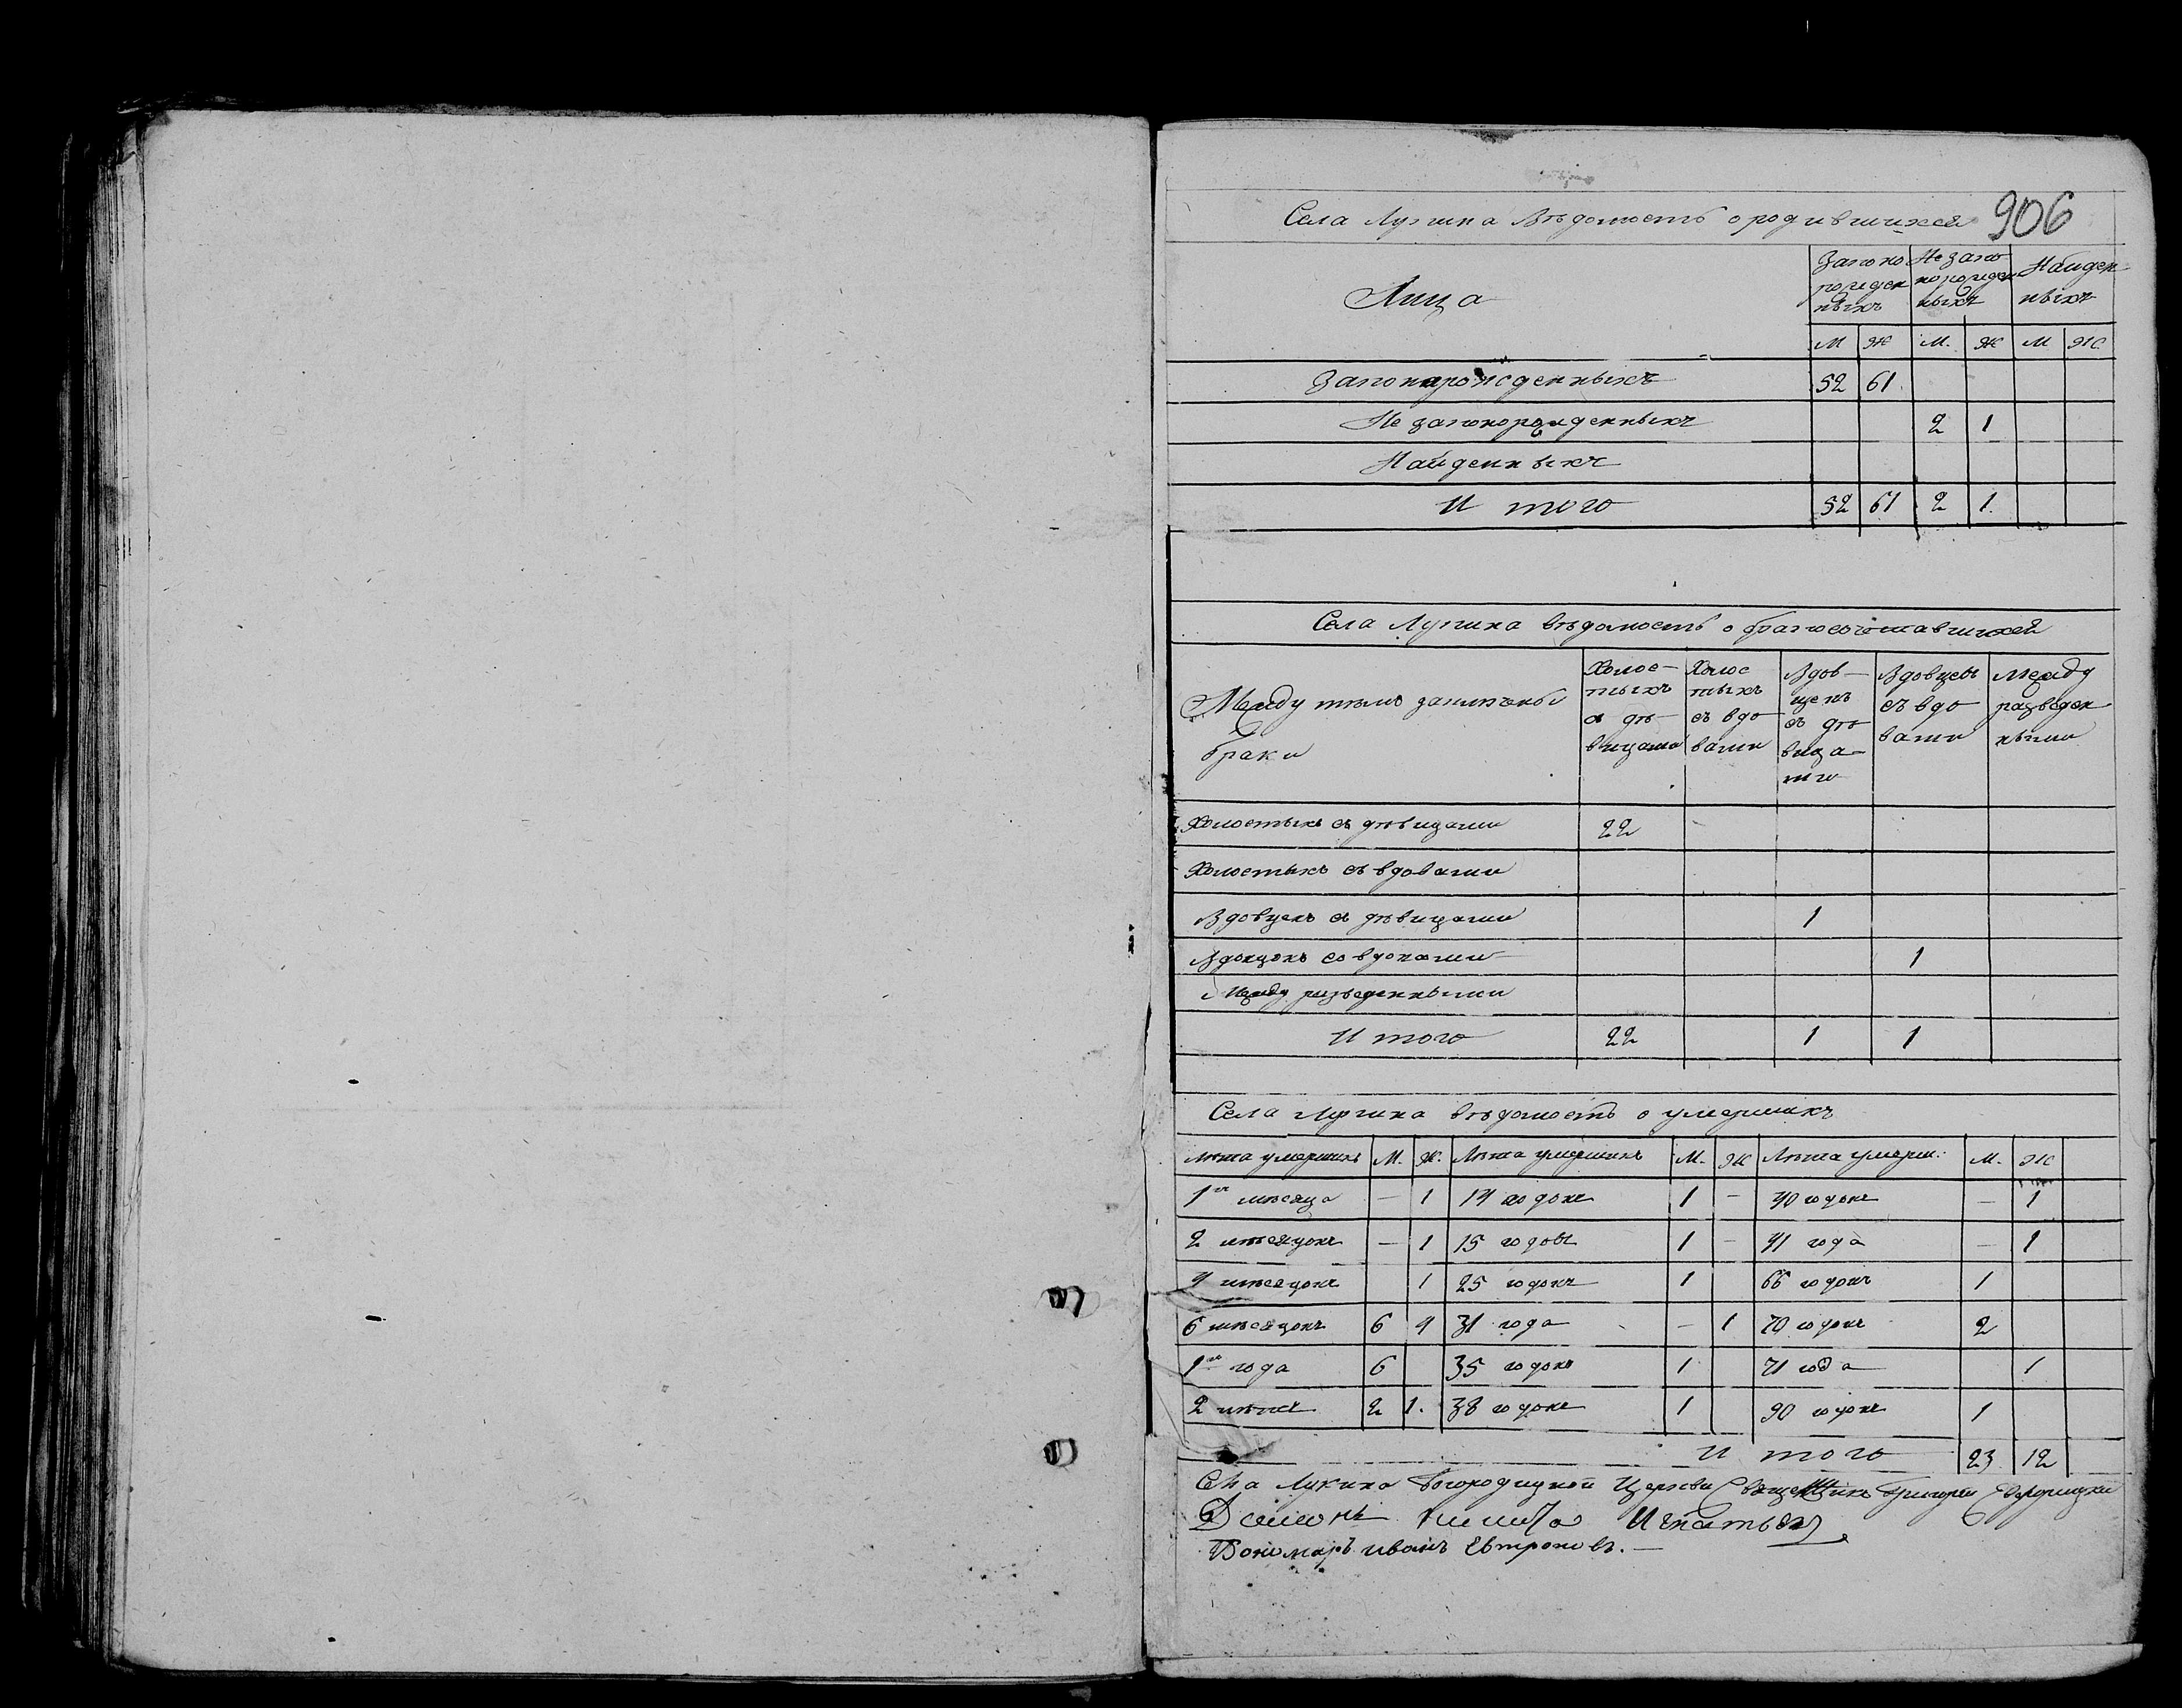 906
Села Лукина Вѣдомость о родившихся
Лица
Законо рожден ныхъ
Не зако норожден ныхъ
Найден ныхъ
М Ж М. Ж М Ж
Законнорожденныхъ 52 61
Не законорожденныхъ 2 1
Найденныхъ
И того 52 61 2 1
Села Лукина вѣдомость о бракосочетавшихся
Между тѣмъ
браки
Холос- тыхъ съ дѣ- вицами
Холос тыхъ съ вдо вами
Вдов- цевъ съ дѣ вица- ми
Вдовцевъ съ вдо вами
Между разведен ными
Холостыхъ съ дѣвицами 22
Холостыхъ съ вдовами
Вдовцевъ съ дѣвицами 1
Вдовцовъ со вдовами 1
Между разведенными
И того 22 1 1
Села Лукина вѣдомость о умершихъ
Лѣта умершихъ М. Ж. Лѣта умершихъ М. Ж Лѣта умерш. М. Ж
1го мѣсяца — 1 14 годовъ 1 — 40 годовъ — 1
2 мѣсяцовъ — 1 15 годовъ 1 — 41 года — 1
4 мѣсяцовъ 1 25 годовъ 1 66 годовъ 1
6 мѣсяцовъ 6 4 31 года — 1 70 годовъ 2
1го года 6 35 годовъ 1 71 года 1
2 лѣтъ 2 1. 38 годовъ 1 90 годовъ 1
И того 23 12
Села Лукина Богородицкой Церкви Священникъ Григорій
Дьяконъ Игнатьевъ
Пономарь иванъ Евтроповъ.—